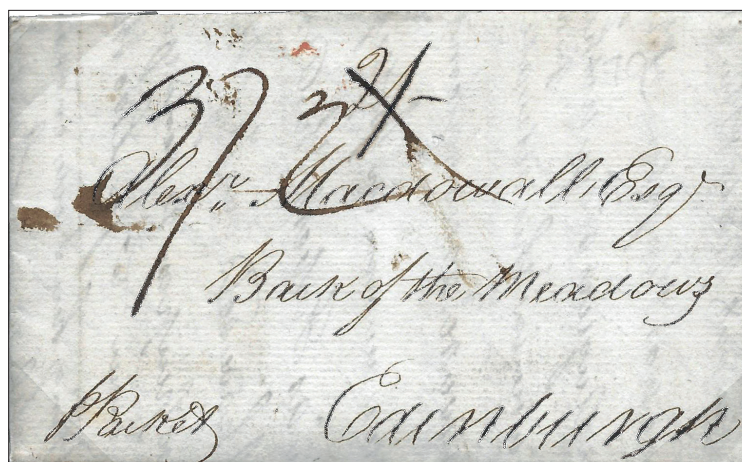 2/-
3/2
Alexr. Macdowall Esqr
Back of the Meadows
Edinburgh
p Packet